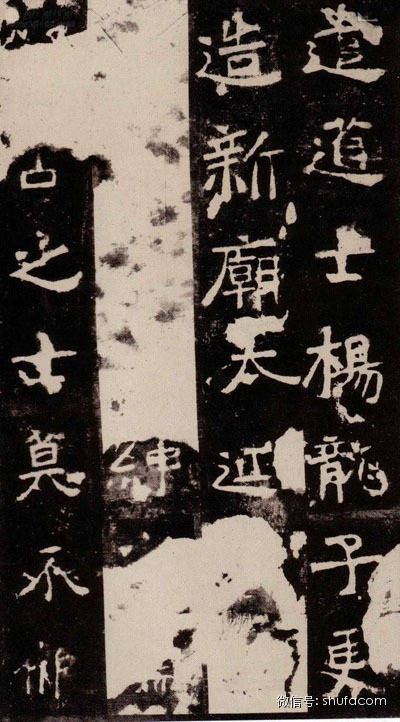 遣道士楊龍子更
造新廟太延
紳
古之士莫不
微信号: shufacom